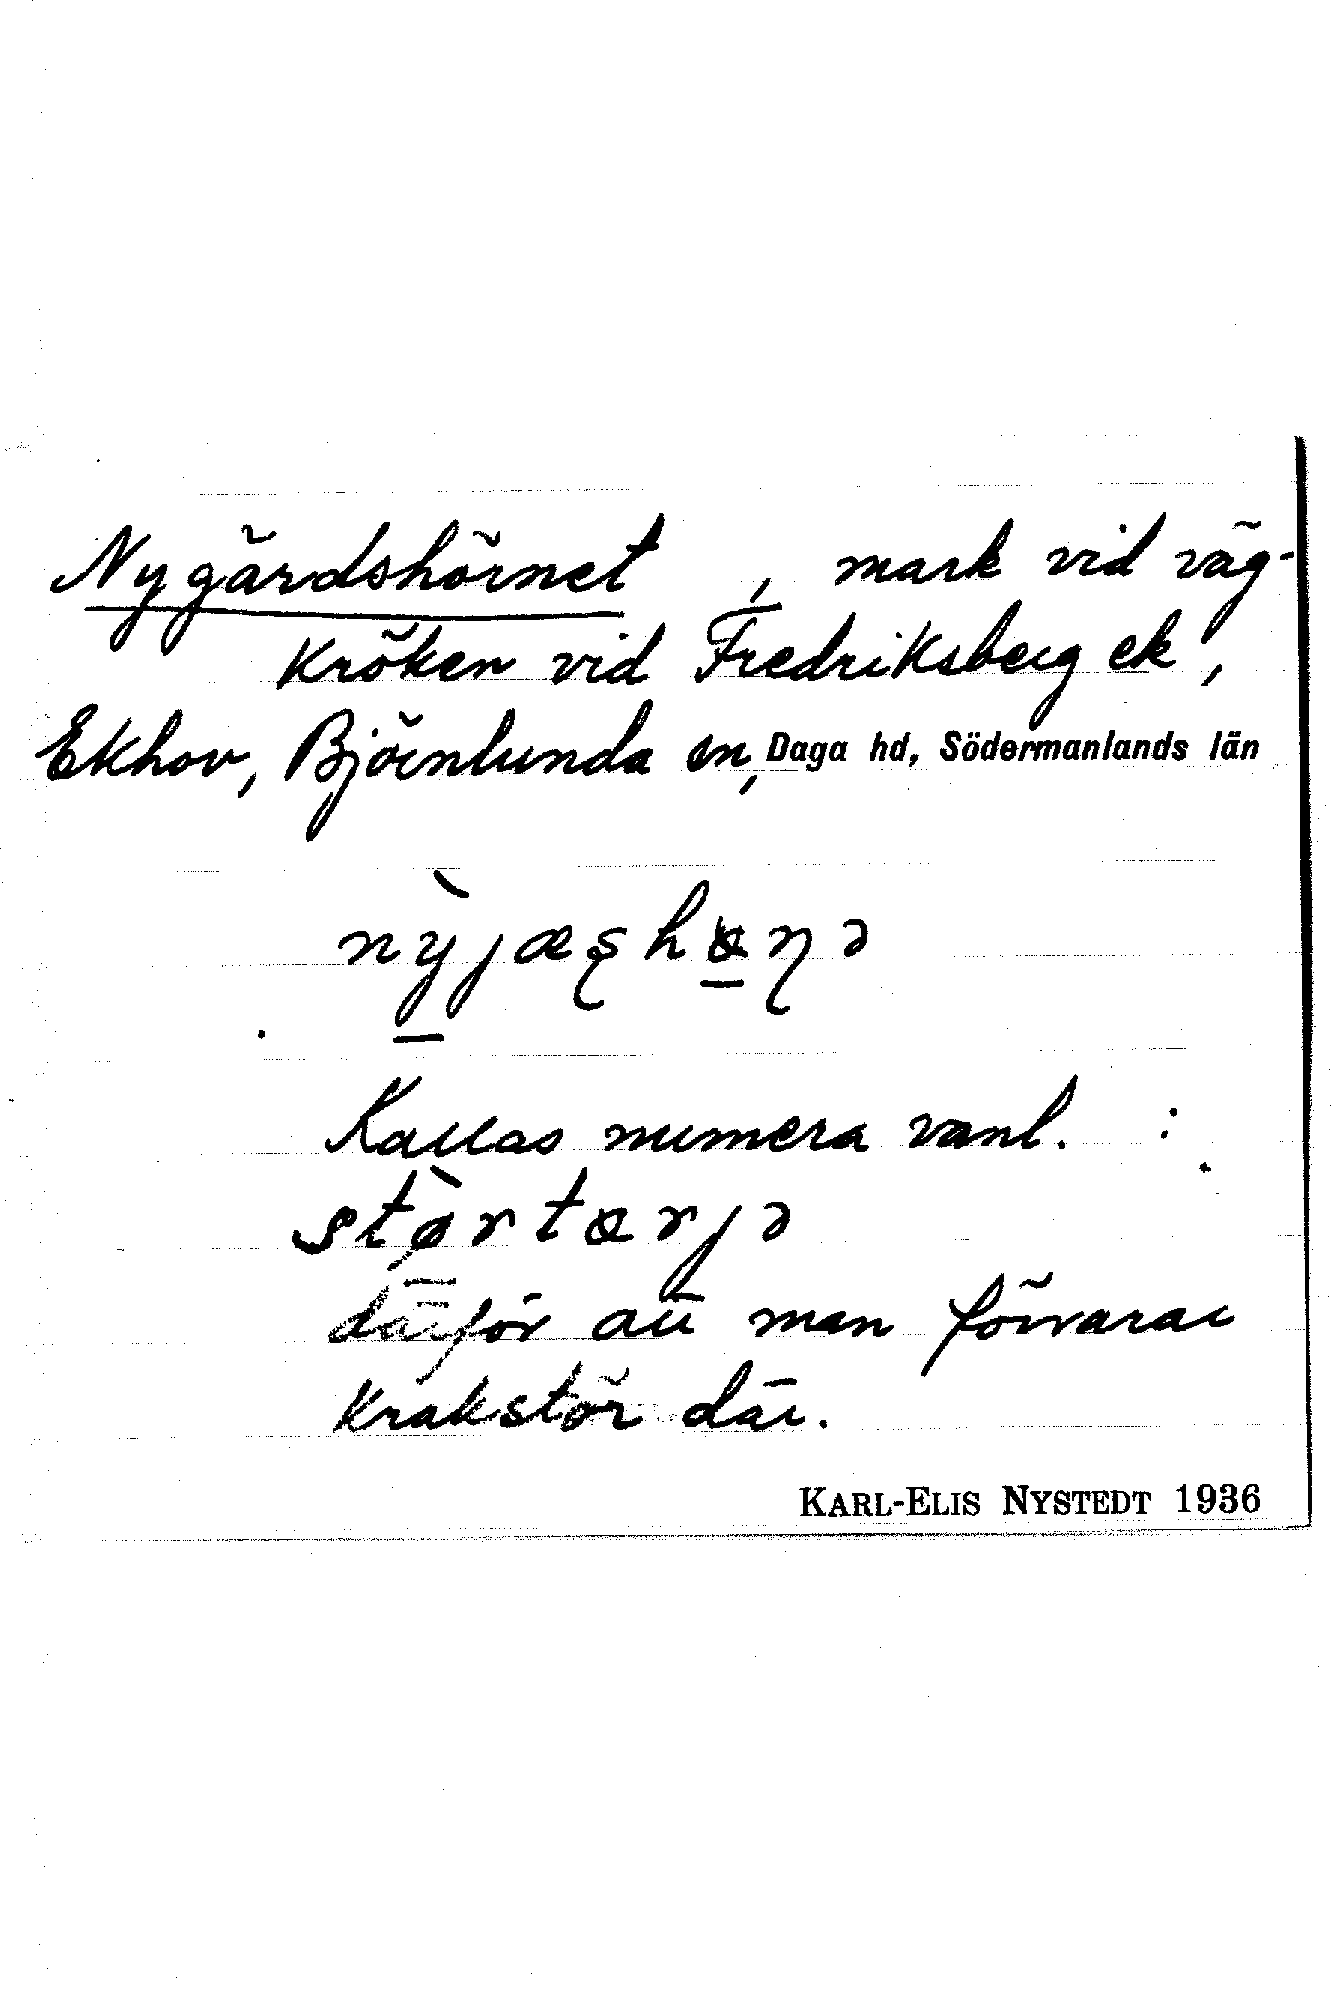 Nygårdshörnet, mark vid väg-
kröken vid Fredriksberg ek,
Ekhov, Björnlunda sn, Daga hd, Södermanlands län
nỳjæꞩhɵɳə
Kallas numera vanl. :
stø̀rtɵrjə
därför att man förvarar
krakstör där.
KARL-ELIS NYSTEDT 1936